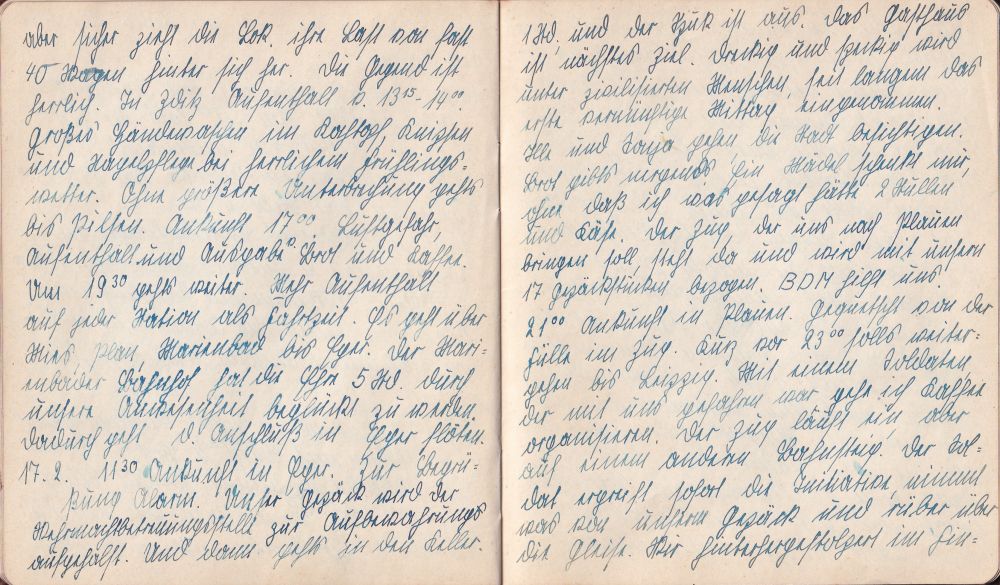 aber sicher zieht die Lok. ihre Last von fast
40 Wagen hinter sich her. Die Gegend ist
herrlich. In Zditz Aufenthalt v. 13¹⁵-14⁰⁰
großes Händewaschen im Kochtopf, Knipsen
und Nagelpflege bei herrlichem Frühlings-
wetter. Ohne größere Unterbrechung gehts
bis Pilsen. Ankunft 17⁰⁰. Luftgefahr,
Aufenthalt und Ausgabe v. Brot und Kaffee.
Um 19³⁰ gehts weiter. Mehr Aufenthalt
auf jeder Station als Fahrtzeit. Es geht über
Mies, Plan, Marienbad bis Eger. Der Mari-
enbader Bahnhof hat die Ehre 5 Std. durch
unsere Anwesenheit beglückt zu werden.
Dadurch geht d. Anschluß in Eger flöten.
17.2. 11³⁰ Ankunft in Eger. Zur Begrü-
ßung Alarm. Unser Gepäck wird der
Wehrmachtbetreuungsstelle zur Aufbewahrung
aufgehälst. Und dann gehts in den Keller.
1 Std. und der Spuk ist aus. Das Gasthaus
ist nächstes Ziel. Dreckig und speckig wird
unter zivilisierten Menschen, seit langem das
erste vernünftige Mittag eingenommen.
Ille und Tanja gehen die Stadt besichtigen.
Brot gibts nirgends. Ein Mädel schenkt mir,
ohne daß ich was gesagt hätte 2 Stullen
und Käse. Der Zug, der uns nach Plauen
bringen soll, steht da und wird mit unsern
17 Gepäckstücken bezogen. BDM hilft uns.
21⁰⁰ Ankunft in Plauen. Gequetscht von der
Fülle im Zug. Kurz vor 23⁰⁰ solls weiter-
gehen bis Leipzig. Mit einem Soldaten,
der mit uns gefahren war geh ich Kaffee
organisieren. Der Zug läuft ein, aber
auf einem anderen Bahnsteig. Der Sol-
dat ergreift sofort die Initiative, nimmt
was von unserm Gepäck und rüber über
die Gleise. Wir hinterhergestolpert im Fin-